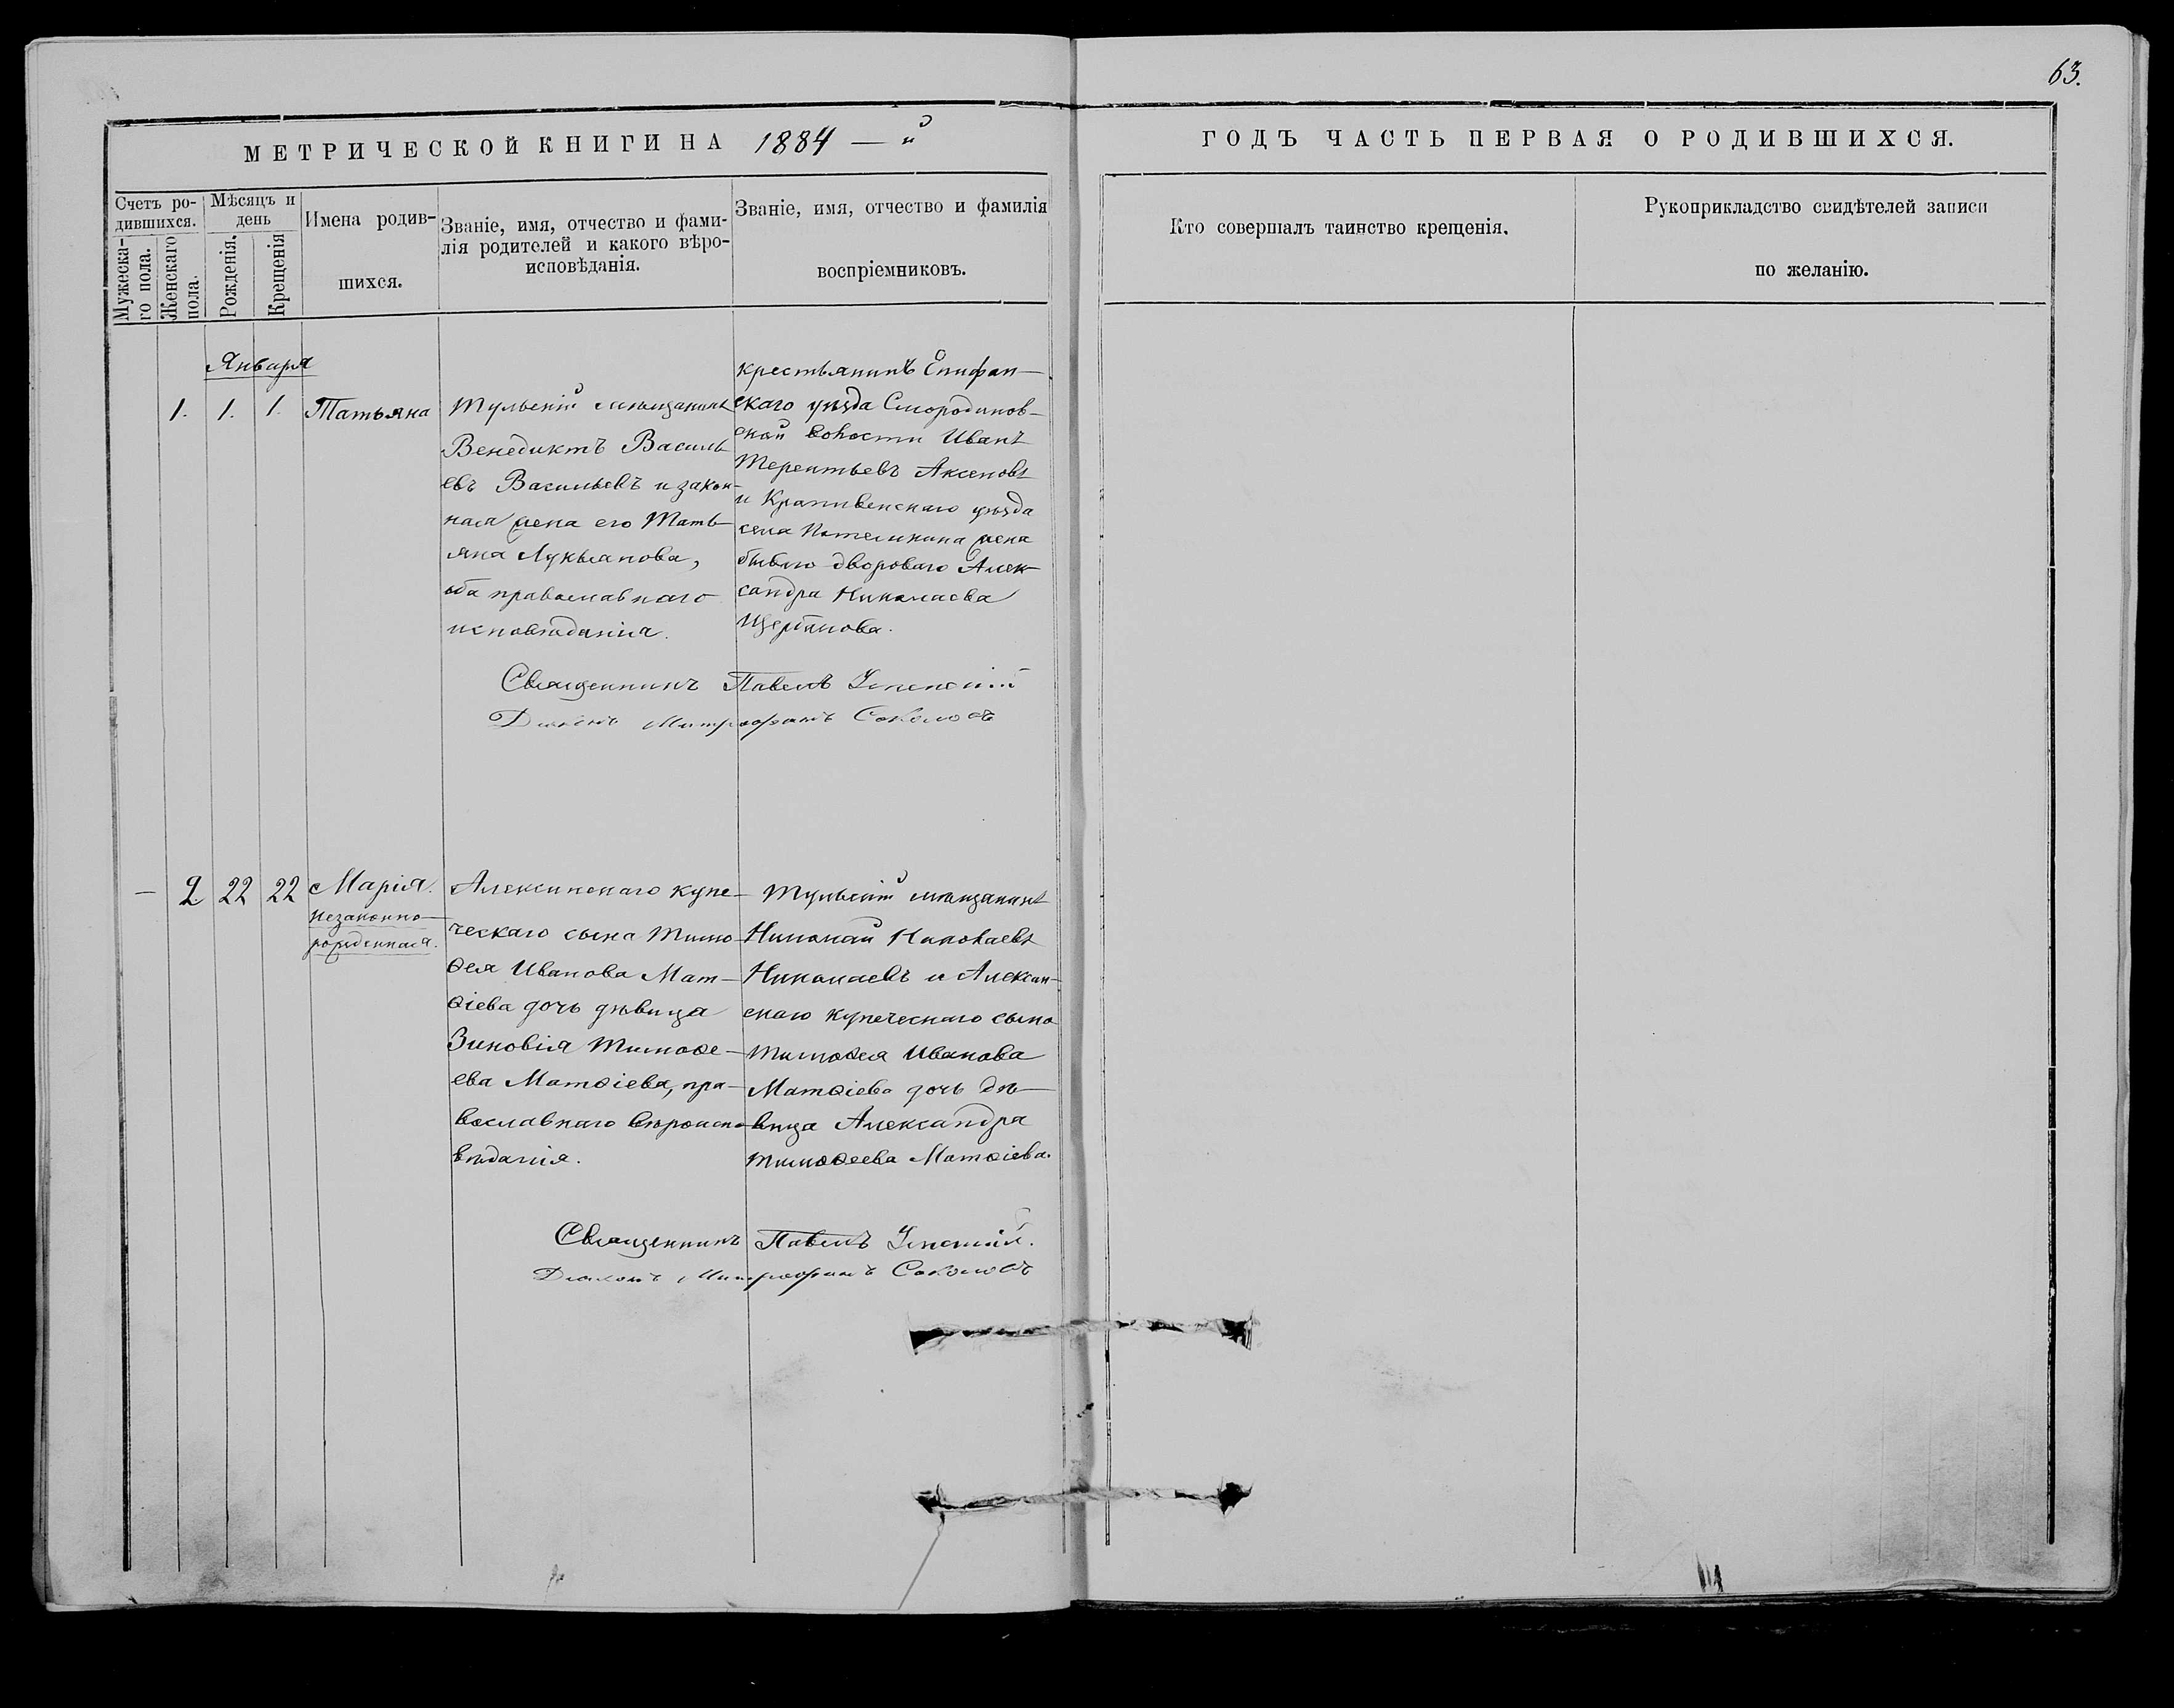 63.
МЕТРИЧЕСКОЙ КНИГИ НА 1884 — й
ГОДЪ ЧАСТЬ ПЕРВАЯ О РОДИВШИХСЯ.
Счетъ ро-
дившихся.
Мужеска-
го пола.
Женскаго
пола.
Мѣсяцъ и
день
Рожденія.
Крещенія
Имена родив-
шихся.
Званіе, имя, отчество и фами-
лія родителей и какого вѣро-
исповѣданія.
Званіе, имя, отчество и фамилія
воспріемниковъ.
Кто совершалъ таинство крещенія.
Рукоприкладство свидѣтелей записи
по желанію.
Января
1. 1. 1. Татьяна
Тульскій мѣщанинъ
Венедиктъ Василь-
евъ Васильевъ и закон-
ная жена его Тать-
яна Лукьянова,
оба православнаго
исповѣданія.
крестьянинъ Епифан-
скаго уѣзда Смородинов-
ской волости Иванъ
Терентьевъ Аксеновъ
и Крапивенскаго уѣзда
села жена
бывшаго двороваго Алек-
сандра Николаева
Священникъ Павелъ Успенскій
Діаконъ Митрофанъ Соколовъ
— 2 22 22 Марія.
незаконно-
рожденная.
Алексинскаго купе-
ческаго сына Тимо-
ѳея Иванова Мат-
ѳіева дочь дѣвица
Зиновія Тимоѳе-
ева Матѳіева, пра-
вославнаго вѣроиспо-
вѣданія.
Тульскій мѣщанинъ
Николай Николаевъ
Николаевъ и Алексин-
скаго купеческаго сына
Тимоѳея Иванова
Матѳіева дочь дѣ-
вица Александра
Тимоѳеева Матѳіева.
Священникъ Павелъ Успенскій.
Діаконъ Митрофанъ Соколовъ